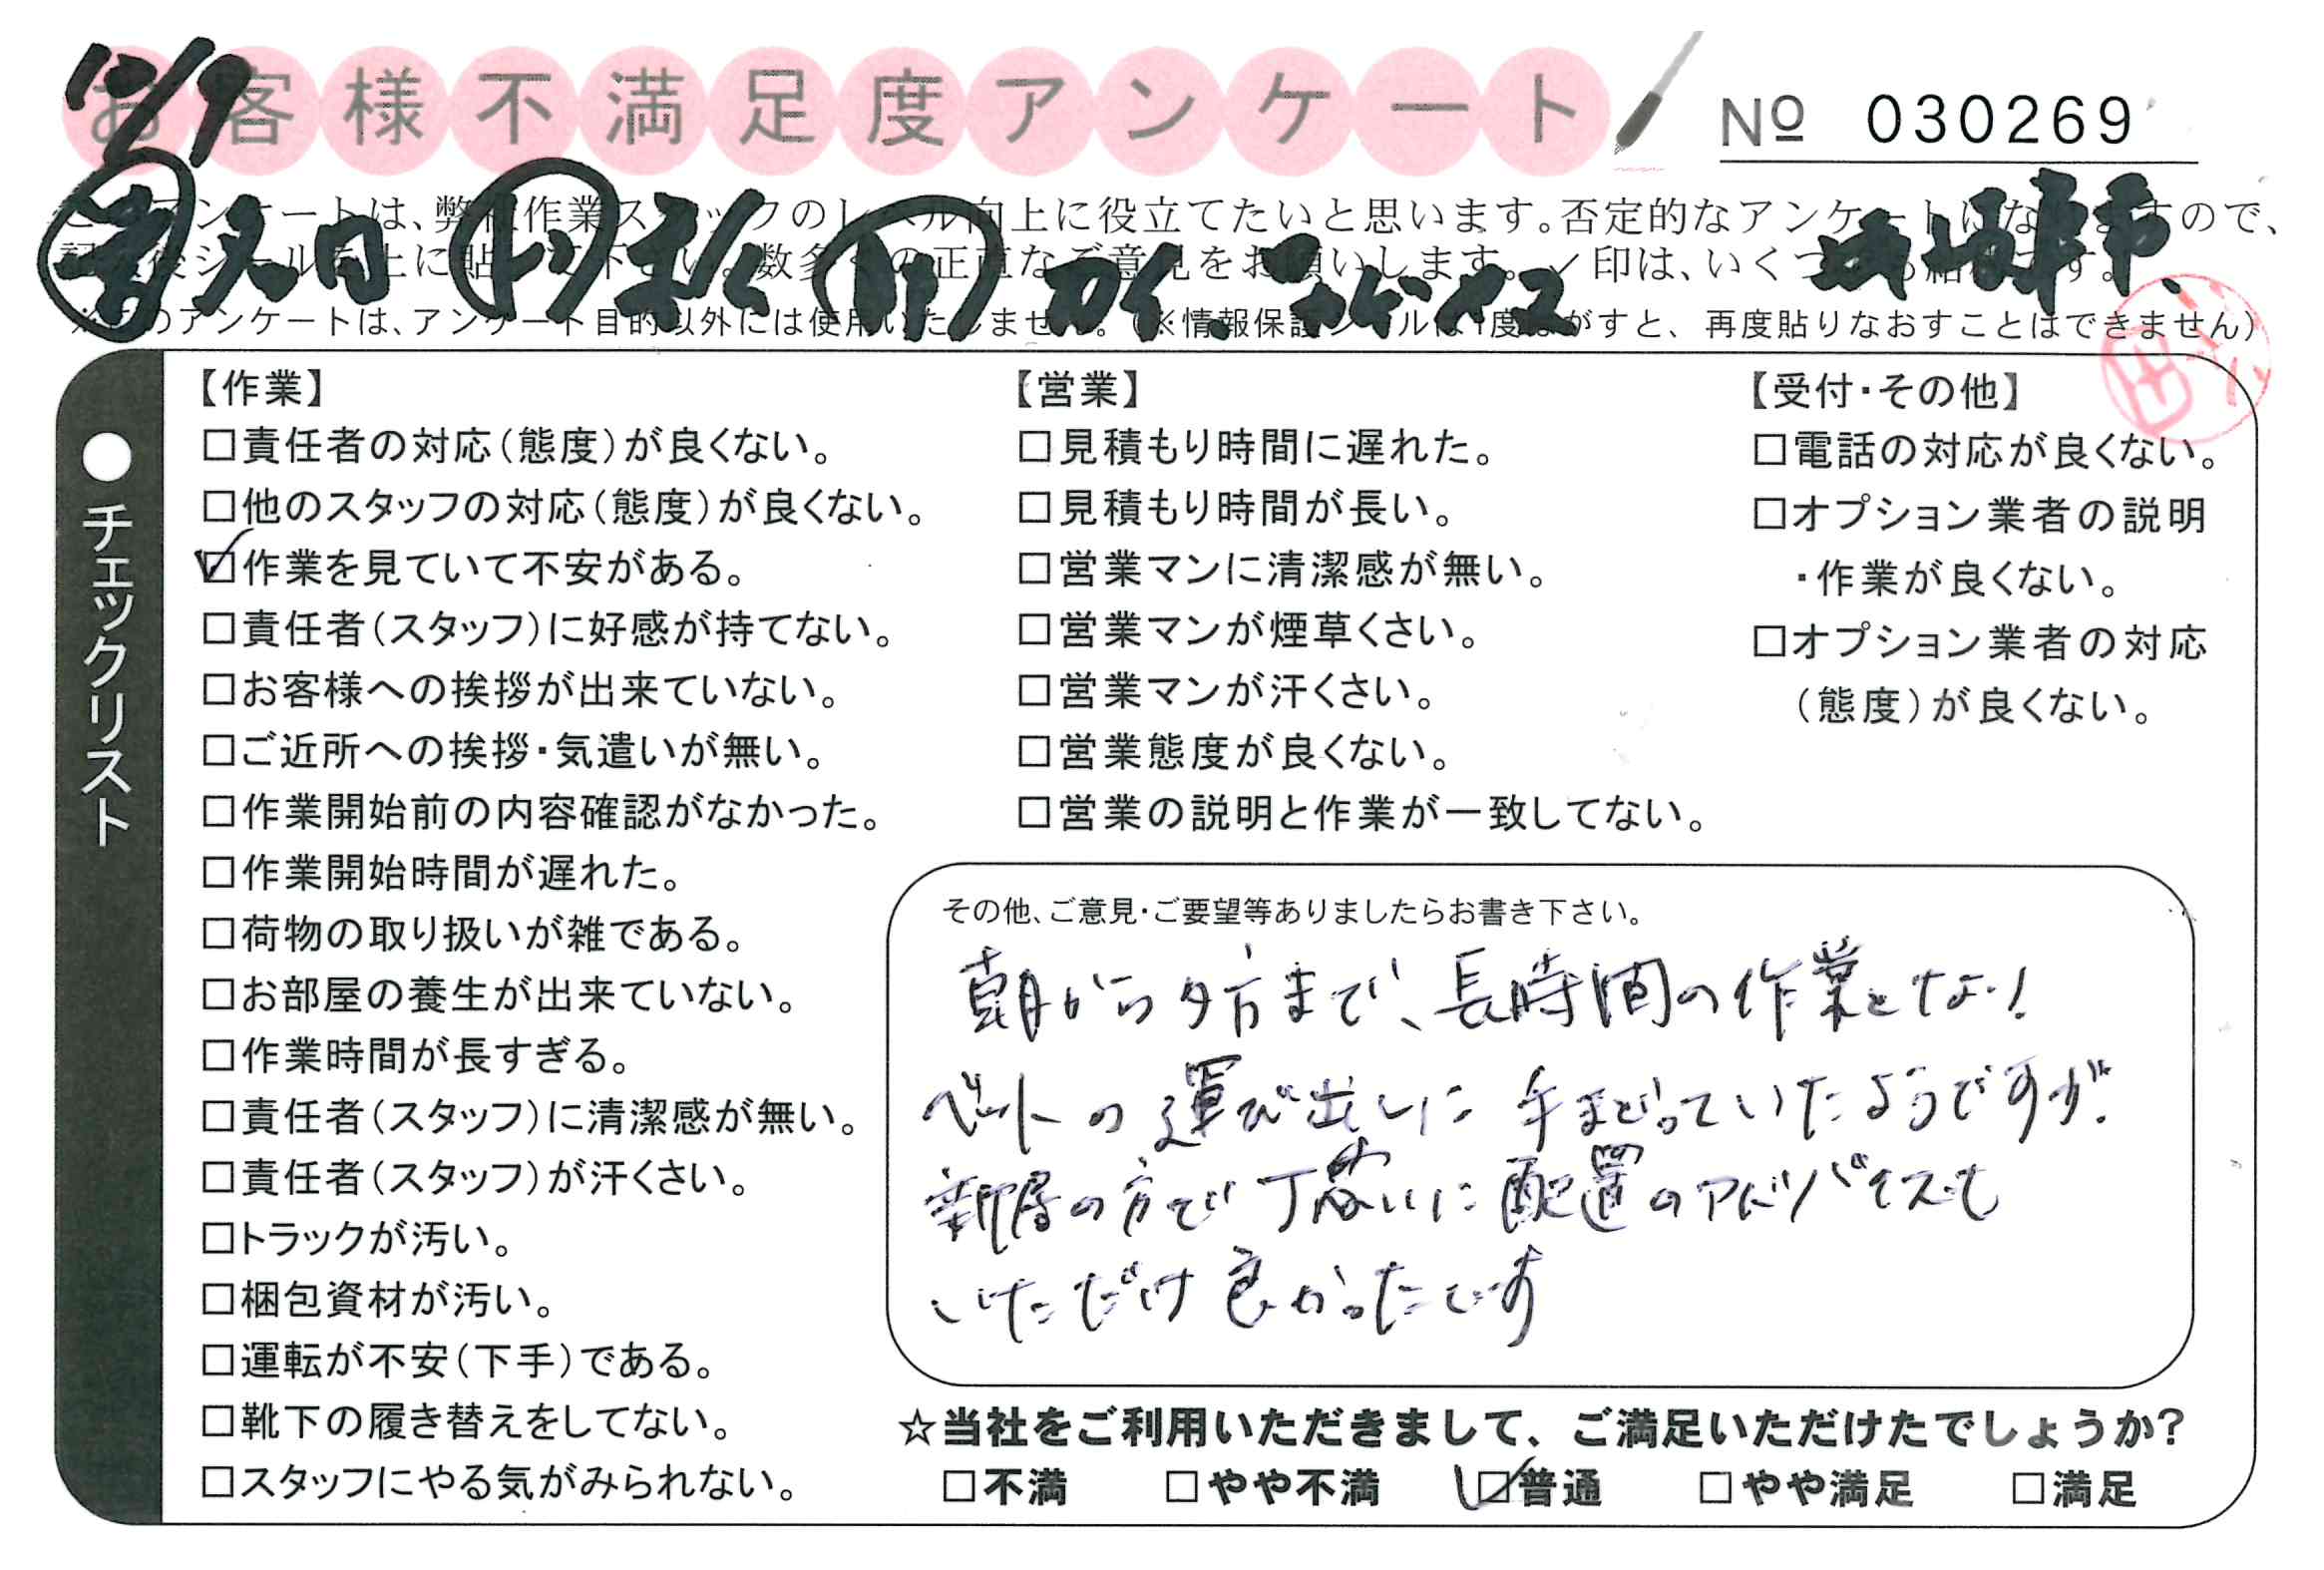 12/9
お客様不満足度アンケート
№ 030269
このアンケートは、弊社作業スタッフのレベル向上に役立てたいと思います。否定的なアンケートになりますので、
記入後シールを上に貼って下さい。数多くの正直なご意見をお願いします。✓印は、いくつでも結構です。
※このアンケートは、アンケート目的以外には使用いたしません。(※情報保護シールは1度はがすと、再度貼りなおすことはできません)
●チェックリスト
【作業】
□責任者の対応(態度)が良くない。
□他のスタッフの対応(態度)が良くない。
☑作業を見ていて不安がある。
□責任者(スタッフ)に好感が持てない。
□お客様への挨拶が出来ていない。
□ご近所への挨拶・気遣いが無い。
□作業開始前の内容確認がなかった。
□作業開始時間が遅れた。
□荷物の取り扱いが雑である。
□お部屋の養生が出来ていない。
□作業時間が長すぎる。
□責任者(スタッフ)に清潔感が無い。
□責任者(スタッフ)が汗くさい。
□トラックが汚い。
□梱包資材が汚い。
□運転が不安(下手)である。
□靴下の履き替えをしてない。
□スタッフにやる気がみられない。
【営業】
□見積もり時間に遅れた。
□見積もり時間が長い。
□営業マンに清潔感が無い。
□営業マンが煙草くさい。
□営業マンが汗くさい。
□営業態度が良くない。
□営業の説明と作業が一致してない。
【受付・その他】
□電話の対応が良くない。
□オプション業者の説明
・作業が良くない。
□オプション業者の対応
(態度)が良くない。
その他、ご意見・ご要望等ありましたらお書き下さい。
朝から夕方まで、長時間の作業となり
ベットの運び出しに手まどっていたようですが、
新居の方で丁寧に配置のアドバイスも
いただけ良かったです
☆当社をご利用いただきまして、ご満足いただけたでしょうか?
□不満 □やや不満 ☑普通 □やや満足 □満足